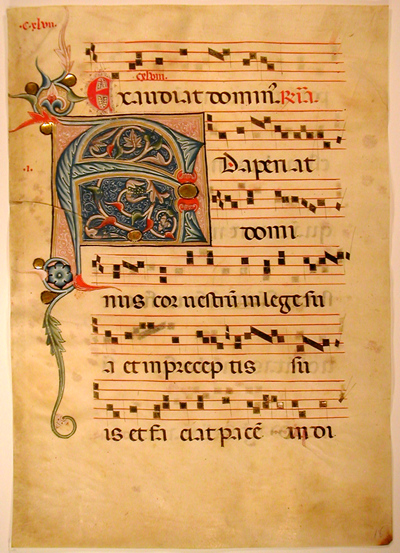 c.xlvii.
cxlviii.
Exaudiat dominus. Ria.
.I.
Adaperiat
domi
nus cor uestrũ in lege su
a et in precep tis su
is et fa ciat pacẽ in di